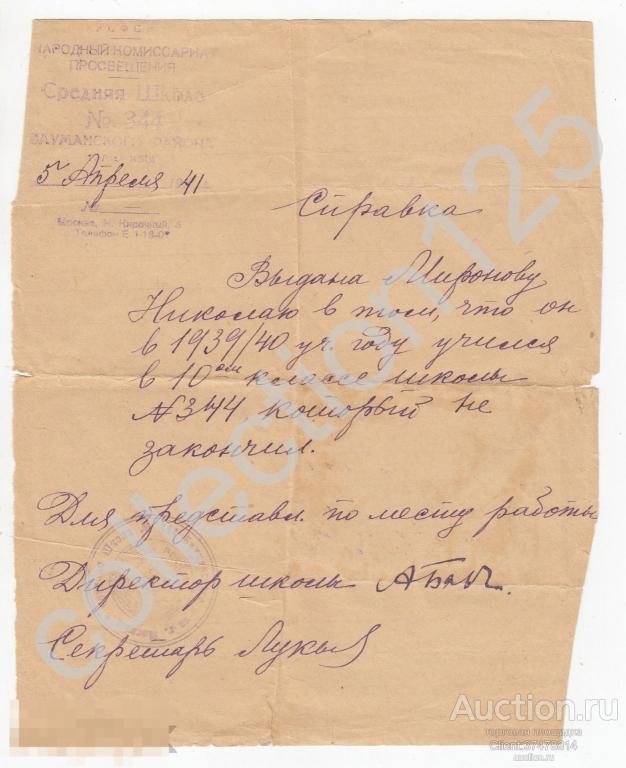 РСФСР
НАРОДНЫЙ КОМИССАРИАТ
ПРОСВЕЩЕНИЯ
Средняя Школа
№ 344
БАУМАНСКОГО РАЙОНА
5 Апреля 41
№ —
Москва, Н. Кировский, 6
Телефон Е 1-18-0
Справка
Выдана Миронову
Николаю в том, что он
в 1939/40 уч. году учился
в 10ом классе школы
№344 который не
закончил.
Для представл. по месту работы
Директор школы
Секретарь Лукья
collection125
Auction.ru
торговая площадка
Client:37478314
auction.ru